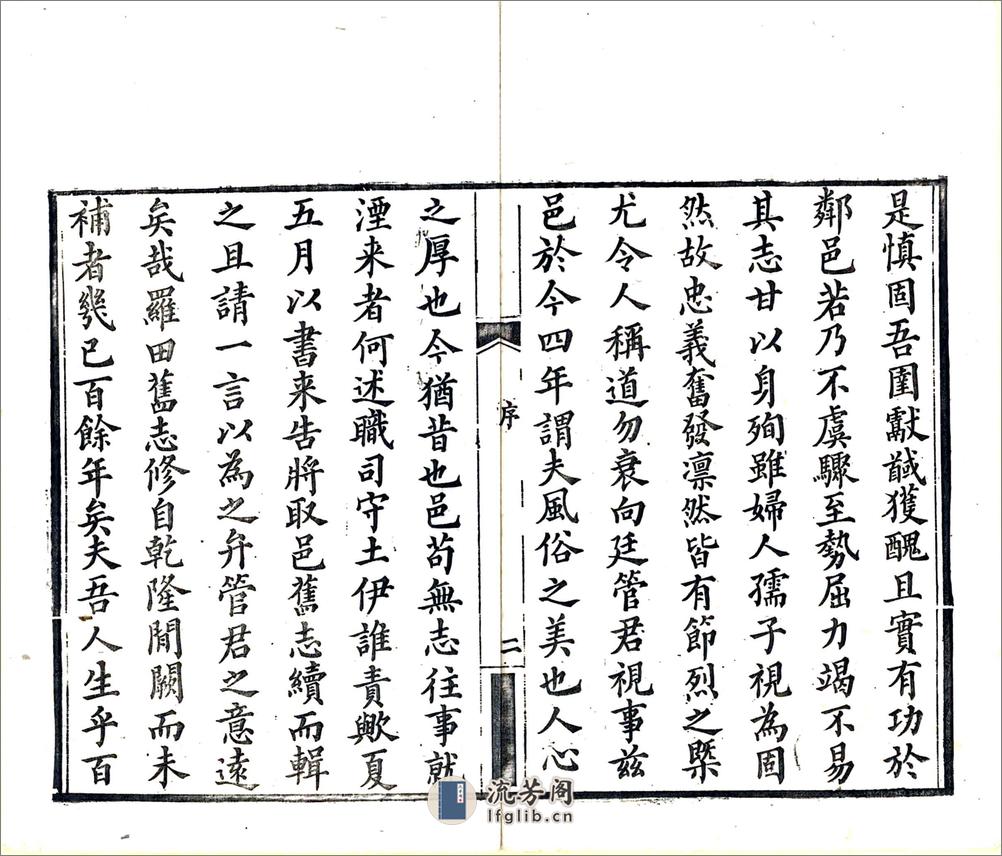 是慎固吾圉獻馘獲醜且實有功於
鄰邑若乃不虞驟至勢屈力竭不易
其志甘以身殉雖婦人孺子視為固
然故忠義奮發凛然皆有節烈之槩
尤令人稱道勿衰向廷管君視事茲
邑於今四年謂夫風俗之美也人心
序
二
之厚也今猶昔也邑苟無志往事就
湮来者何述職司守土伊誰責歟夏
五月以書来告將取邑舊志續而輯
之且請一言以為之弁管君之意遠
矣哉羅田舊志修自乾隆閒闕而未
補者幾已百餘年矣夫吾人生乎百
流芳阁
lfglib.cn